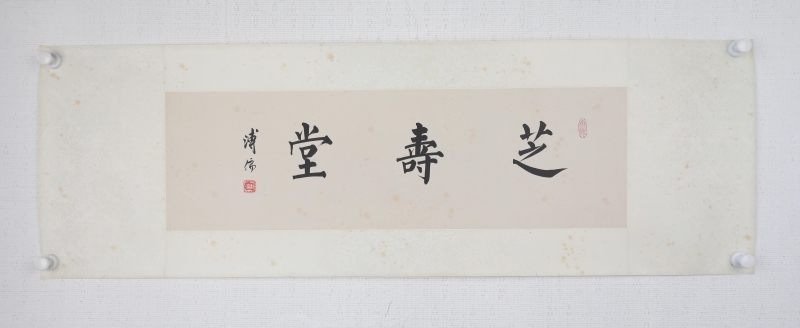 芝壽堂
溥儒